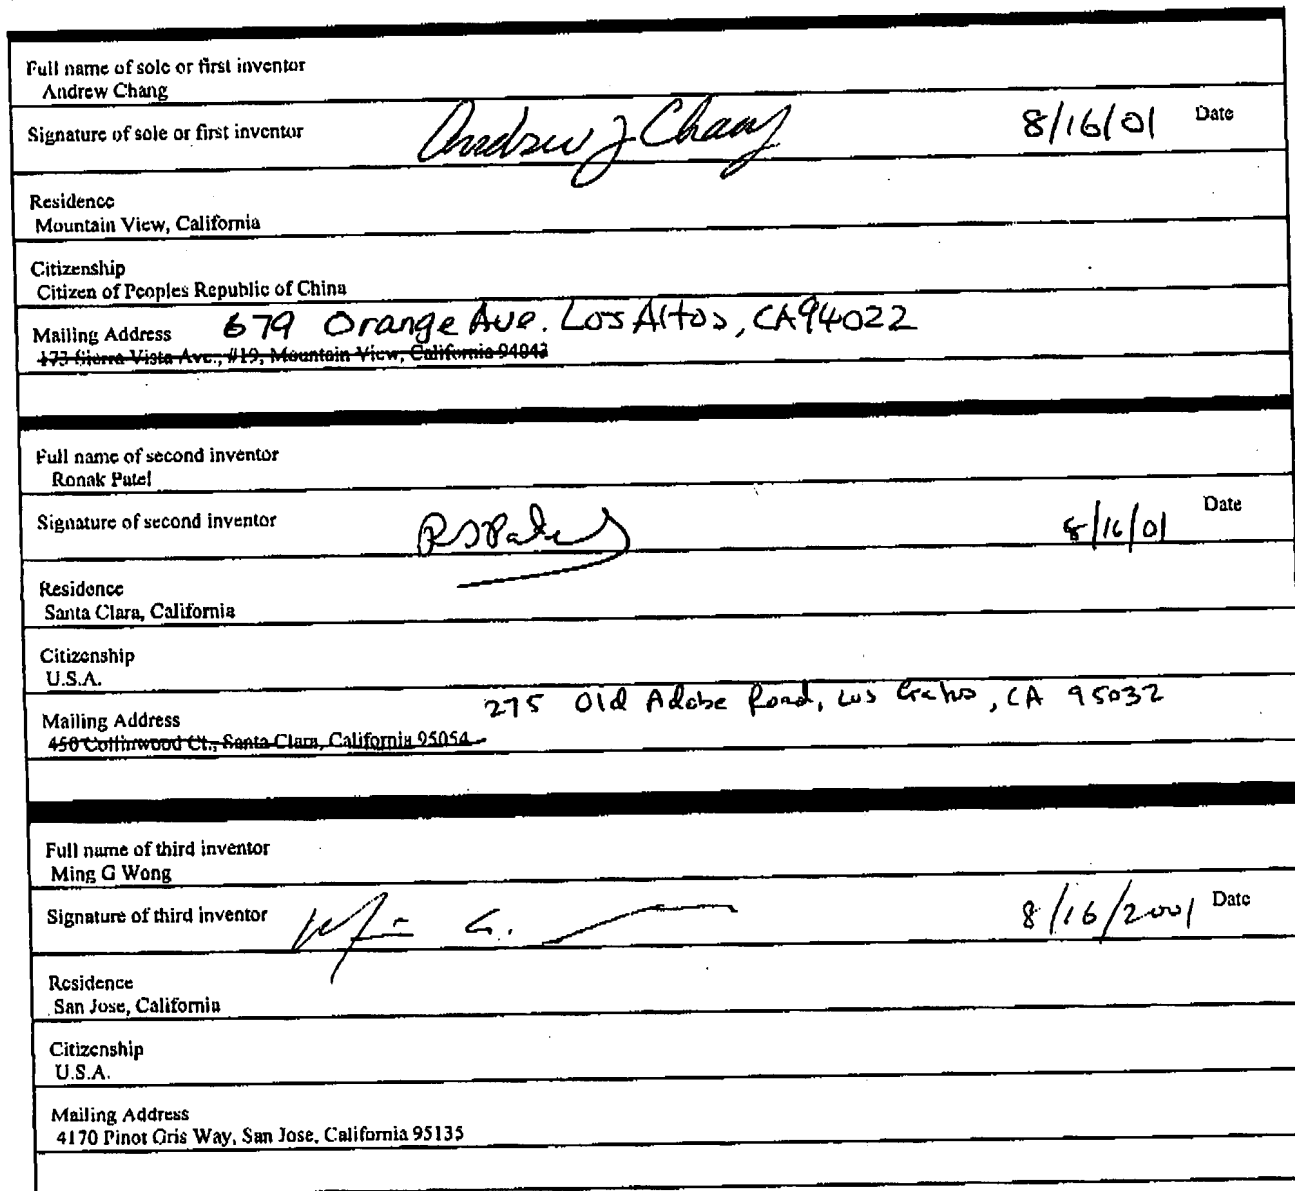 Full name of sole or first inventor
Andrew Chang
Signature of sole or first inventor Andrew J Chang 8/16/01 Date
Residence
Mountain View, California
Citizenship
Citizen of Peoples Republic of China
Mailing Address 679 Orange Ave. Los Altos, CA 94022
173 Sierra Vista Ave., #19, Mountain View, California 94043
Full name of second inventor
Ronak Patel
Signature of second inventor RSPatel 8/16/01 Date
Residence
Santa Clara, California
Citizenship
U.S.A.
275 Old Adobe Road, Los Gatos, CA 95032
Mailing Address
450 Collinwood Ct., Santa Clara, California 95054
Full name of third inventor
Ming G Wong
Signature of third inventor G. 8/16/2001 Date
Residence
San Jose, California
Citizenship
U.S.A.
Mailing Address
4170 Pinot Gris Way, San Jose, California 95135